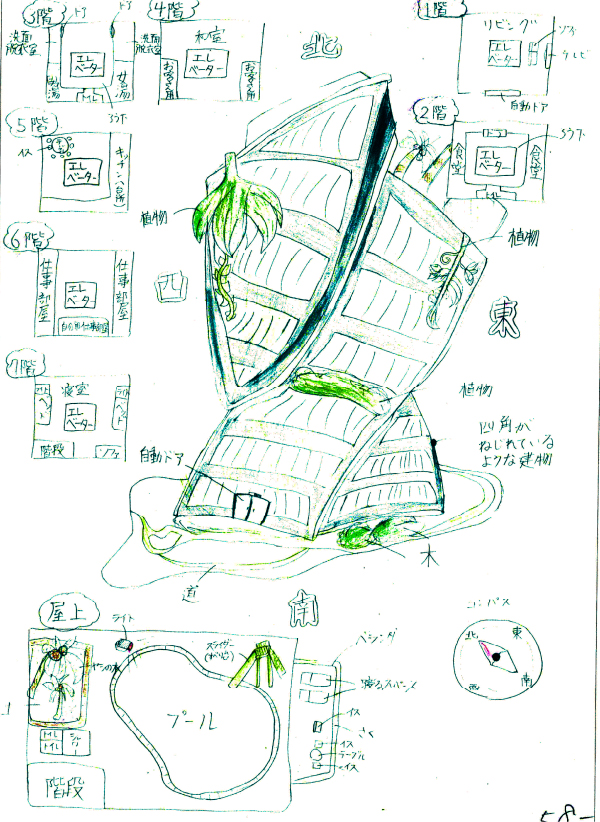 3階
ドア
ドア
洗面
脱衣室
洗面
脱衣室
エレ
ベーター
男湯
女湯
トイレ
ろう下
4階
和室
エレ
ベーター
北
1階
リビング
エレ
ベーター
ソファ
テレビ
自動ドア
5階
イス
エレ
ベーター
キッチン(台所)
2階
ドア
食堂
エレ
ベーター
食堂
トイレ
ろう下
植物
植物
6階
仕事部屋
エレ
ベータ
仕事部屋
西
東
7階
寝室
エレ
ベーター
ベット
ベット
階段
ソファ
植物
自動ドア
四角が
ねじれている
ような建物
木
道
南
屋上
ライト
スライダー
ヤシの木
プール
トイレ
トイレ
階段
イス
さく
イス
テーブル
イス
コンパス
北
東
西
南